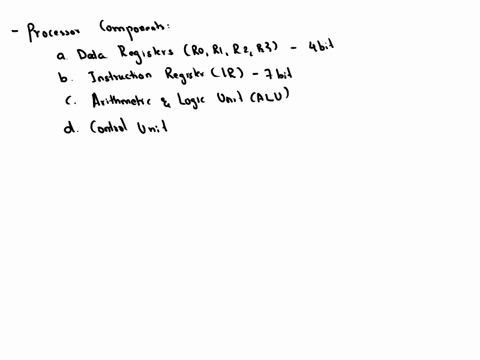 - Processor Components:
a. Data Registers (R0, R1, R2, R3) - 4bit
b. Instruction Register (IR) - 7bit
c. Arithmetic & Logic Unit (ALU)
d. Control Unit